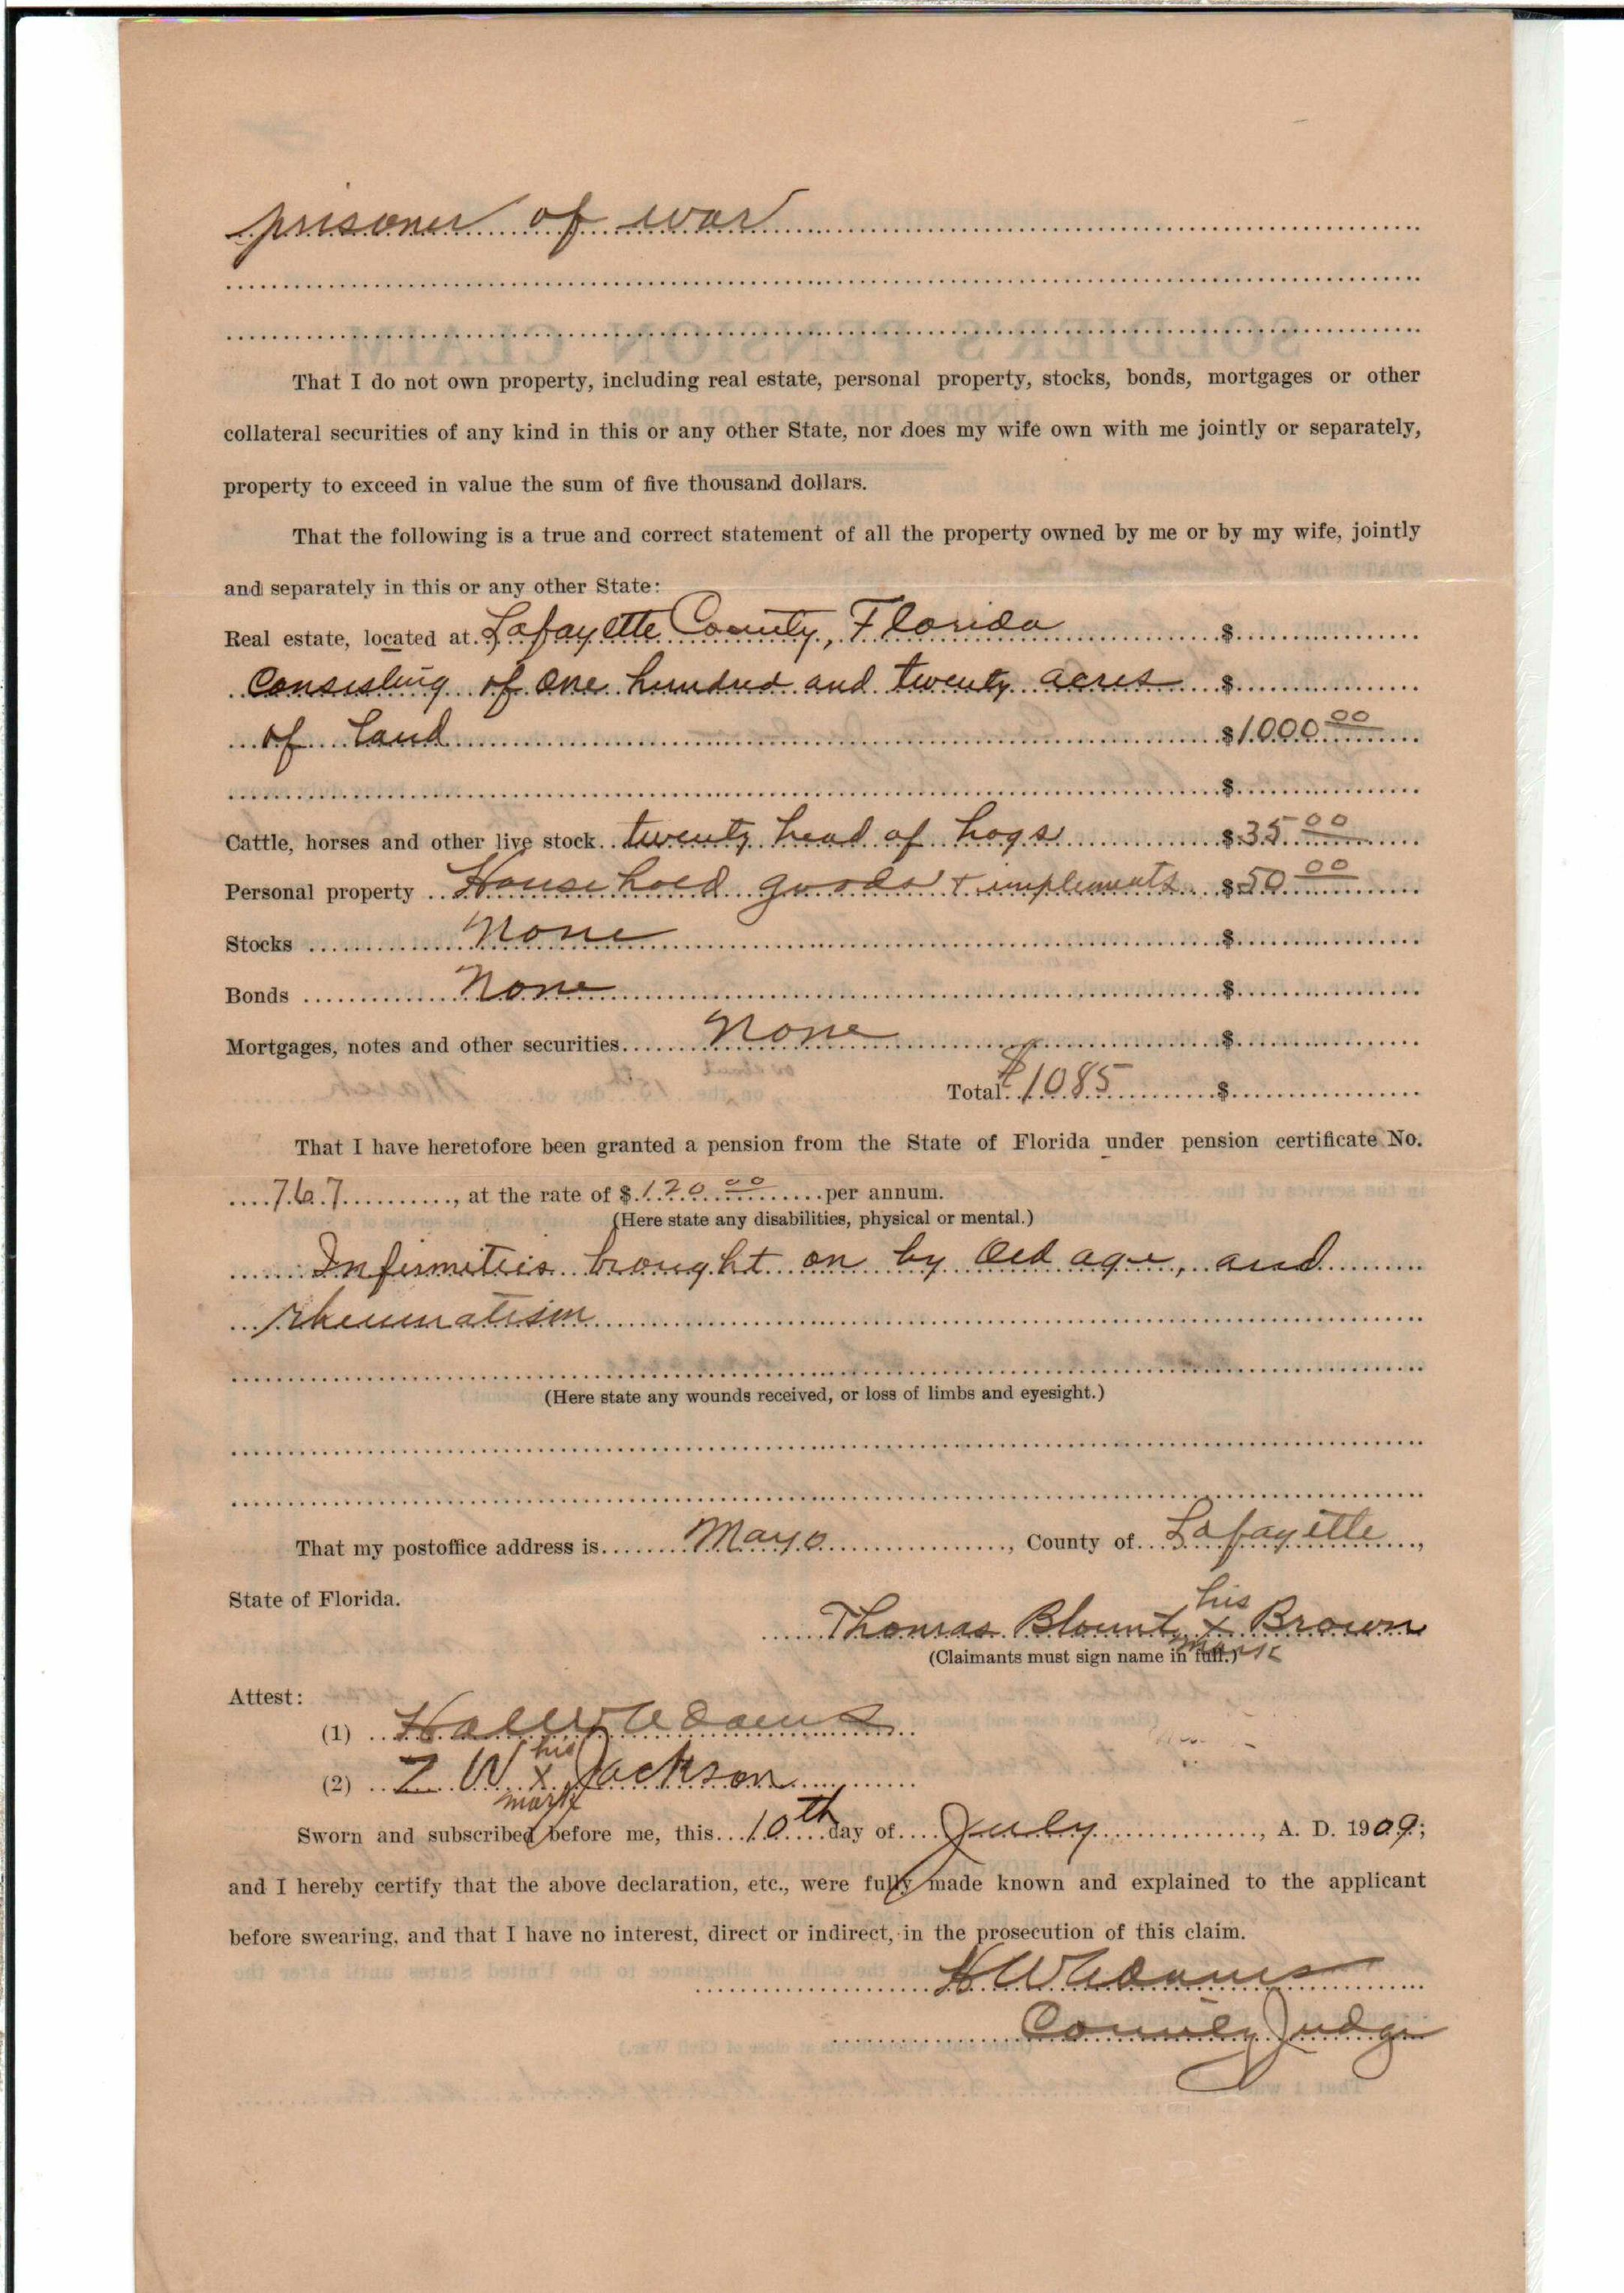 prisoner of war
That I do not own property, including real estate, personal property, stocks, bonds, mortgages or other
collateral securities of any kind in this or any other State, nor does my wife own with me jointly or separately,
property to exceed in value the sum of five thousand dollars.
That the following is a true and correct statement of all the property owned by me or by my wife, jointly
and separately in this or any other State:
Real estate, located at Lafayette County, Florida $
Consisting of One hundred and twenty acres $
of land $1000 00
$
Cattle, horses and other live stock twenty head of hogs $35 00
Personal property Household goods & implements $50 00
Stocks None $
Bonds None $
Mortgages, notes and other securities None $
Total $1085 $
That I have heretofore been granted a pension from the State of Florida under pension certificate No.
767, at the rate of $120 00 per annum.
(Here state any disabilities, physical or mental.)
Infirmities brought on by Old age, and
rheumatism
(Here state any wounds received, or loss of limbs and eyesight.)
That my postoffice address is Mayo, County of Lafayette,
State of Florida.
his
Thomas Blount x Brown
mark
(Claimants must sign name in full.)
Attest:
(1) Adams
his
(2) Z W x Jackson
mark
Sworn and subscribed before me, this 10th day of July, A. D. 1909;
and I hereby certify that the above declaration, etc., were fully made known and explained to the applicant
before swearing, and that I have no interest, direct or indirect, in the prosecution of this claim.
H W Adams
County Judge